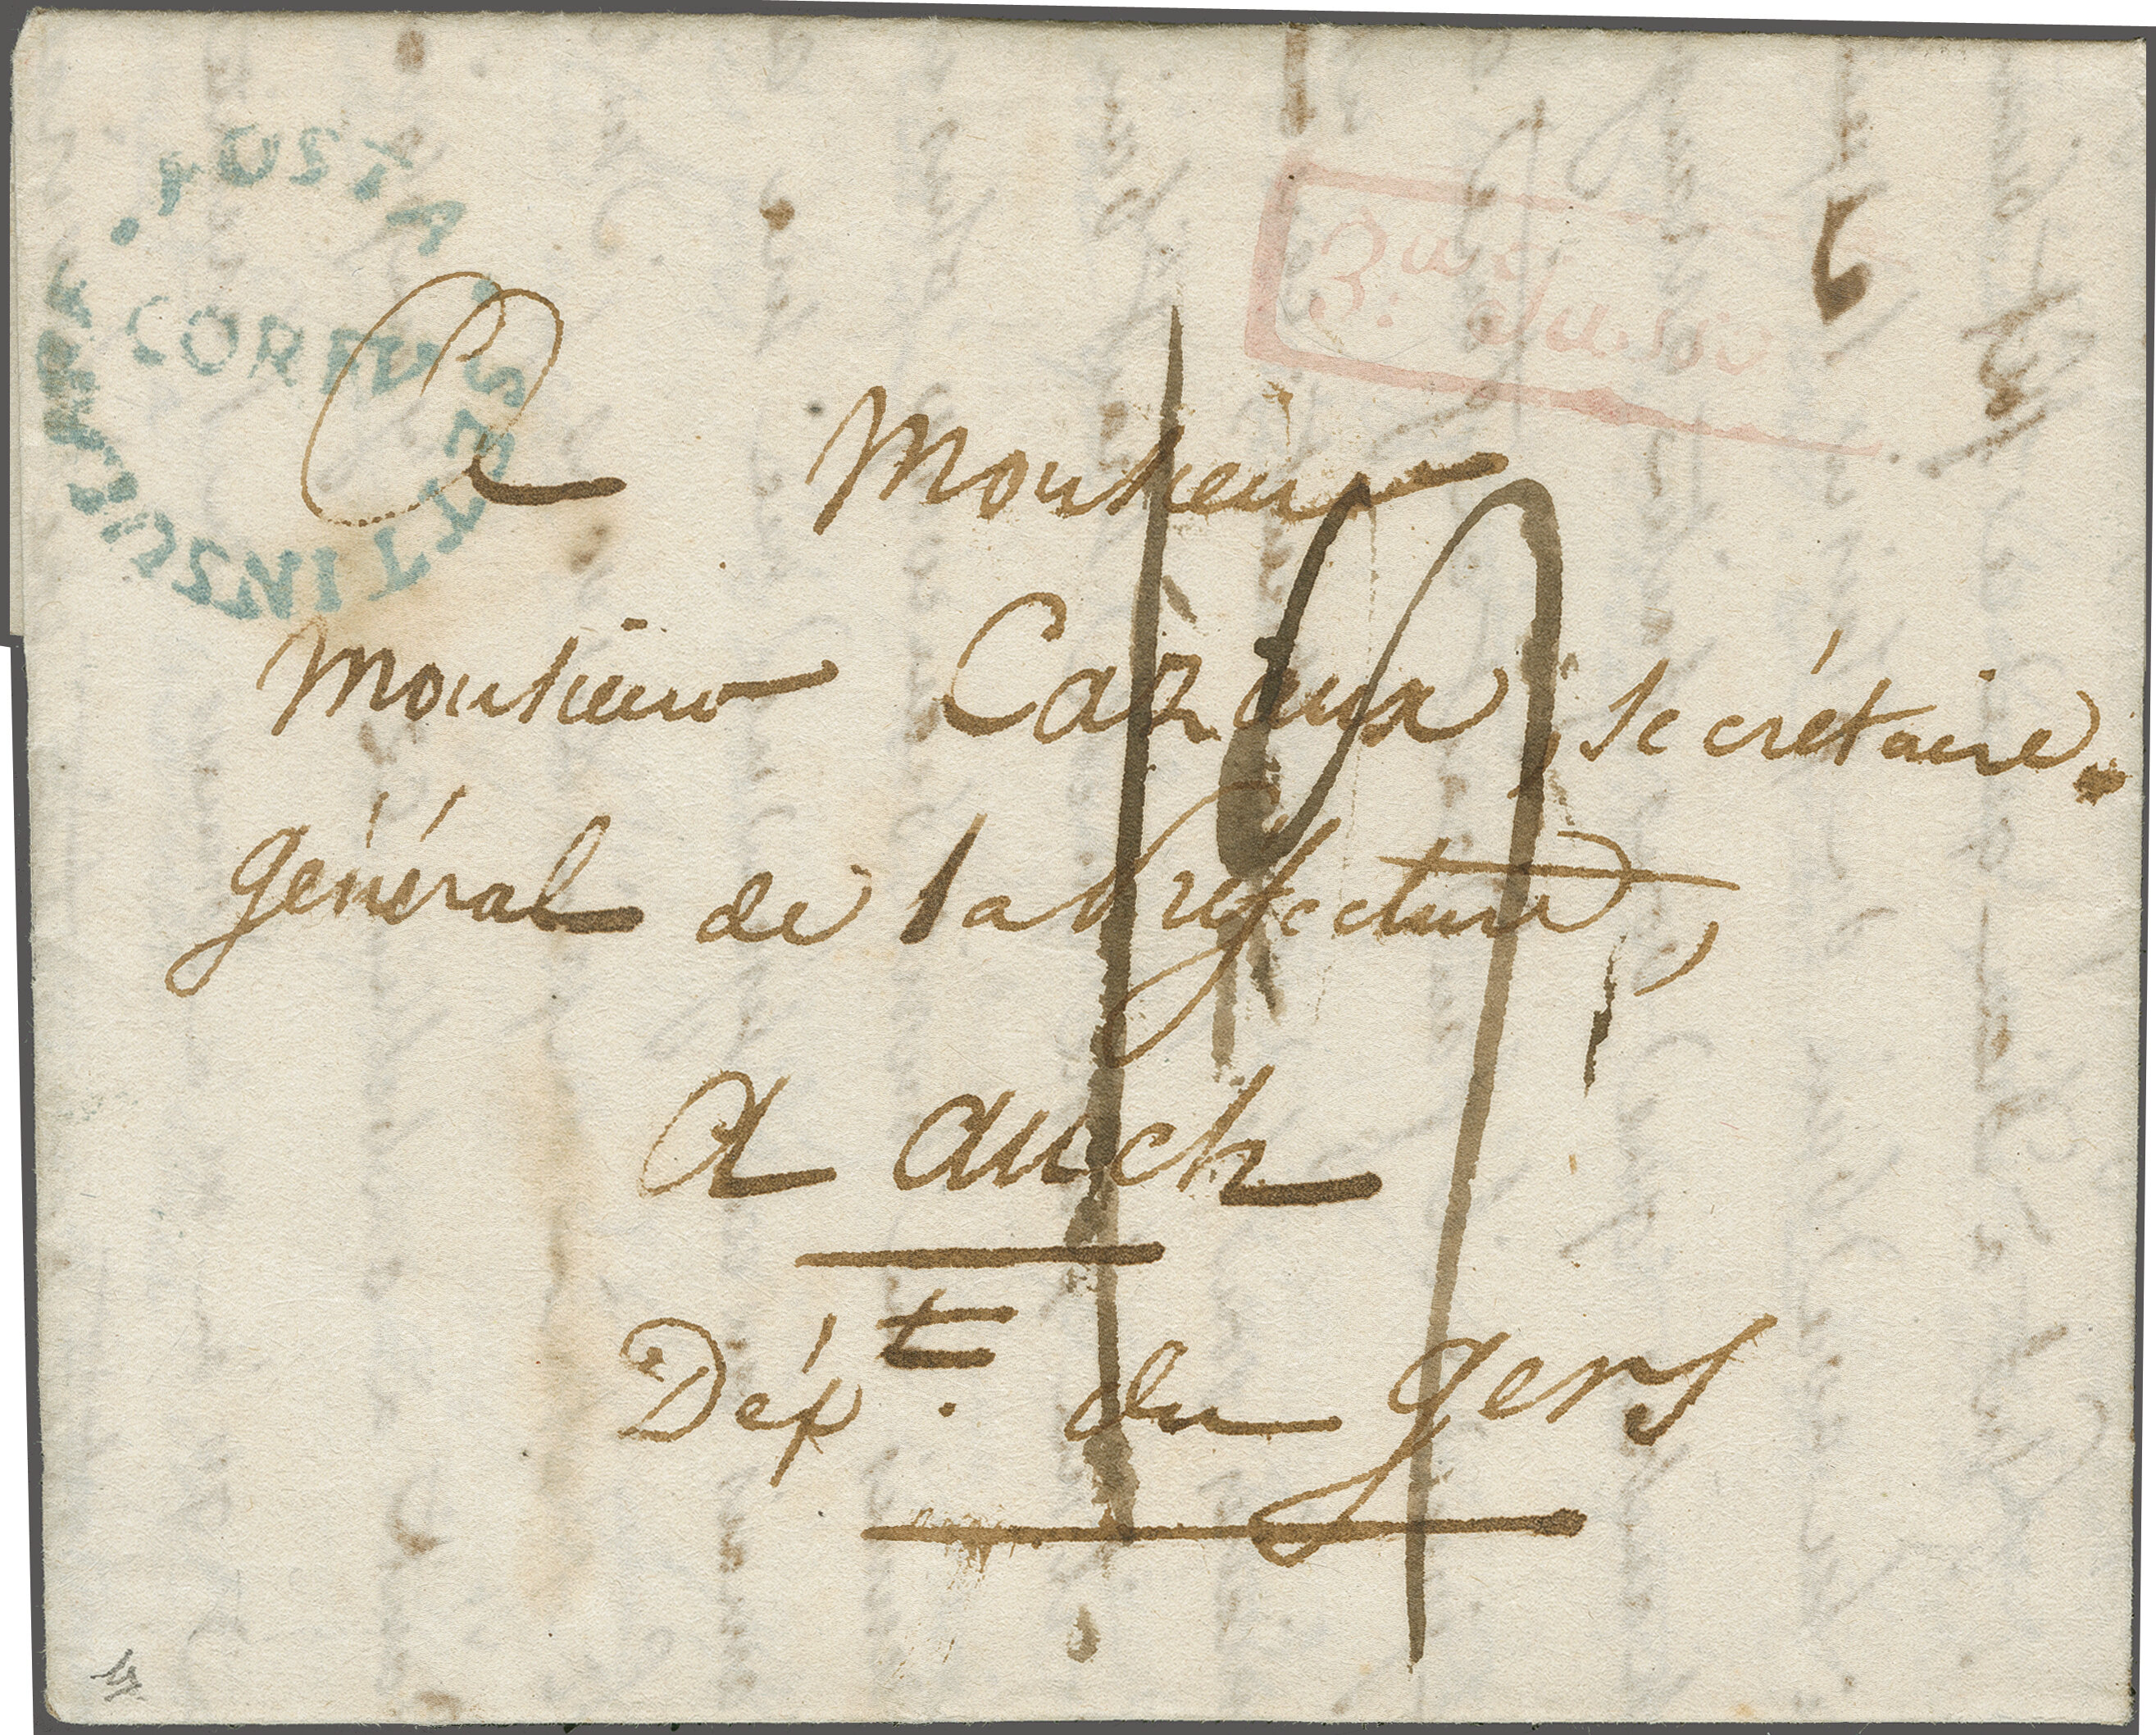 POSTA
CORFU
SETTINSULARE
A Monsieur
Monsieur Cazaux, secrétaire
général de la préfecture,
A auch
Dépt. du gers